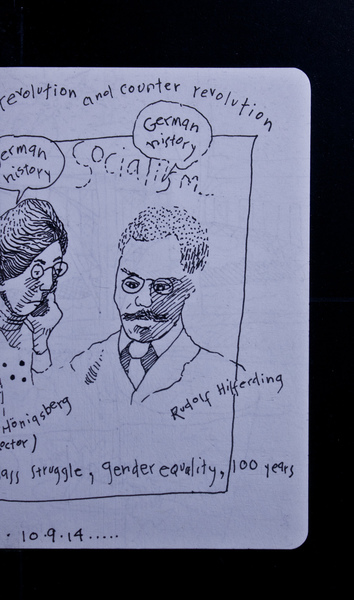 revolution and counter revolution
German
history
erman
history
Socialism..
Hönigsberg
octor)
Rudolf Hilferding
ass struggle, gender equality, 100 years
. 10.9.14.....